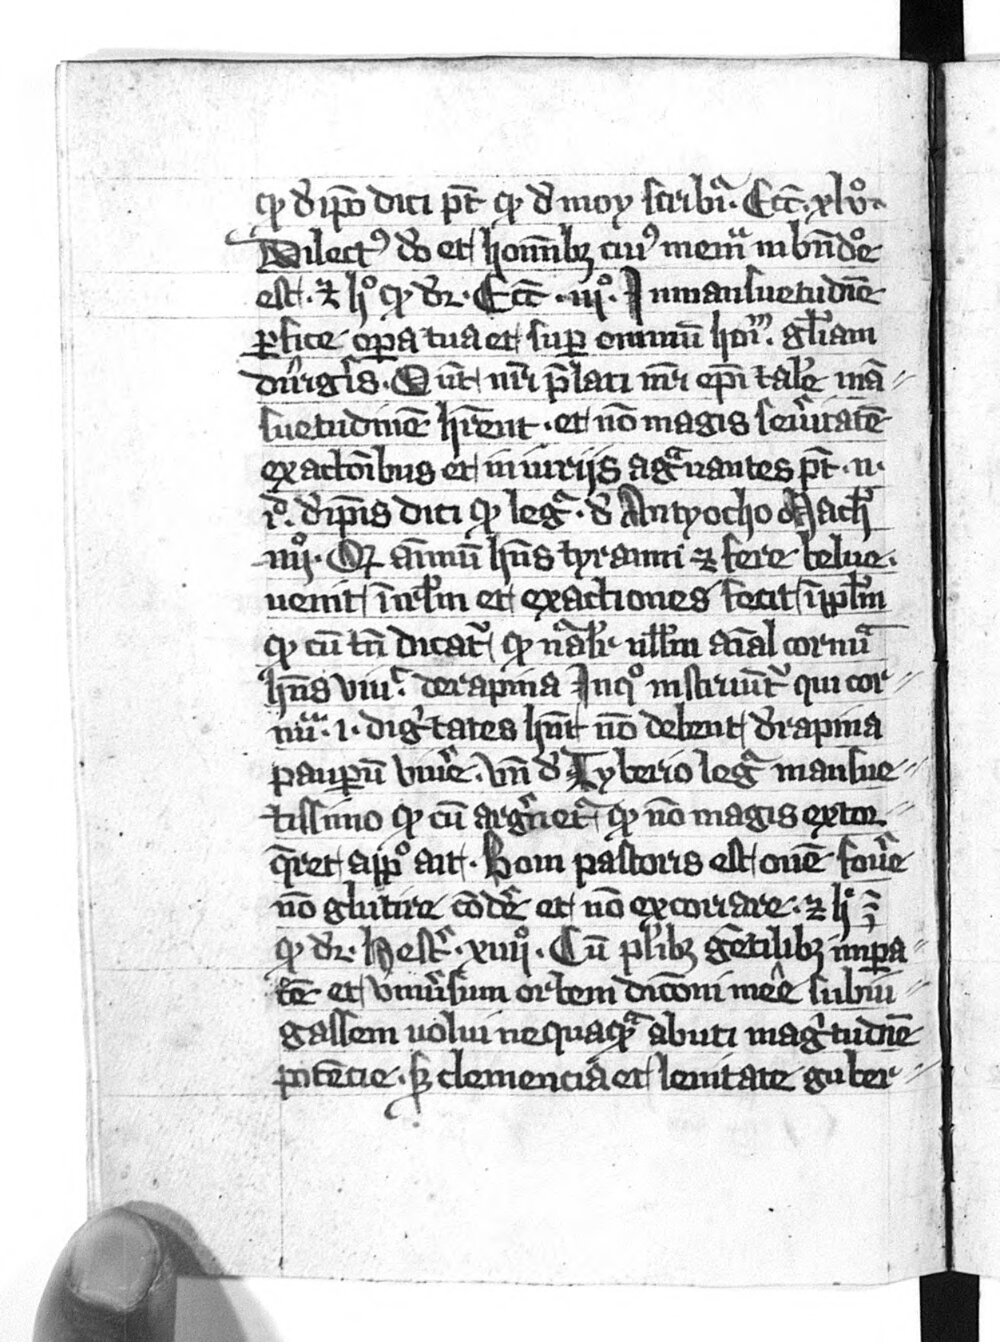 qͥ d̕ ip̄o dici pt̄ qͥ d̕ moy scribiͬ. Ecc̄. xlv°.
Dilectꝰ do et hominibꝫ cuiꝰ memͬ in bn̄doē
est. ⁊ h° qͥ dr̄. Ecc̄. iij°. In mansuetudīe
ꝑfice opa tua et suꝑ omniū hoīm. gl̄iam
diligͥs. D nr̄i p̄lati nr̄i ep̄i tal̄e mā
suetudinē hr̄ent. et nō magis seuitatē
exactōibus et iniurijs agͣuantes pt̄. n.
i°. d̕ ip̄is dici qͥ legͬ. d̕ Antyocho Mach̄
iiij°. Q animū hn̄s tyranni ⁊ fere belue.
uenit ī irl̄m et exactiones fecit ī ppl̄m
qͥ cū tn̄ dicatͬ qͥ nͣal̄r null̄m aīal cornuͣ
hn̄s viuͥ. de rapina In qͦ instruūtͬ qui cor
nuͣ. i. digͥtates hn̄t nō debent d̕ rapina
pauꝑū viuͤe. vn̄ d̕ Tyberio legͬ mansue
tissimo qͥ cū arguetͬ qͥ nō magis extor
q̄ret app° ait. Boni pastoris est ouē fouͤe
nō glutire tōdͤe et nō excoriare. ⁊ h°
qͥ dr̄. Hestͬ. xiiij°. Cū pl̄ibꝫ gētilibꝫ impa
rē et vniuͤsum orbem dicōni mee subiu
gassem uolui nequaqͣ abuti magͥtudīe
potēcie. sꝫ clemencia et lenitate guber